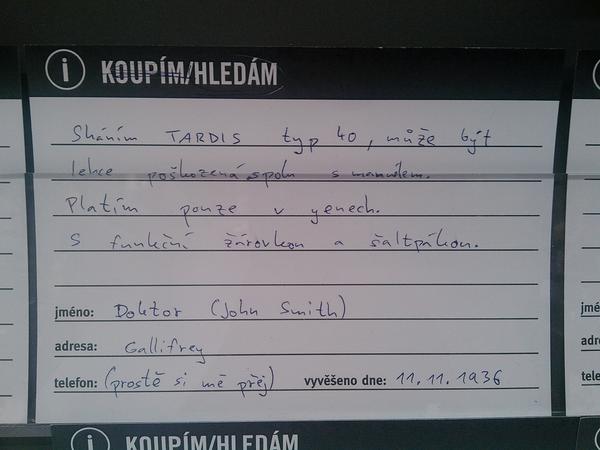 KOUPÍM/HLEDÁM
Sháním TARDIS typ 40, může být
lehce poškozená spolu s manuálem.
Platím pouze v yenech.
S funkční žárovkou a šaltpákou.
jméno: Doktor (John Smith)
adresa: Gallifrey
telefon: (prostě si mě přej) vyvěšeno dne: 11.11.1936
KOUPÍM/HLEDÁM
jmé
adre
tele